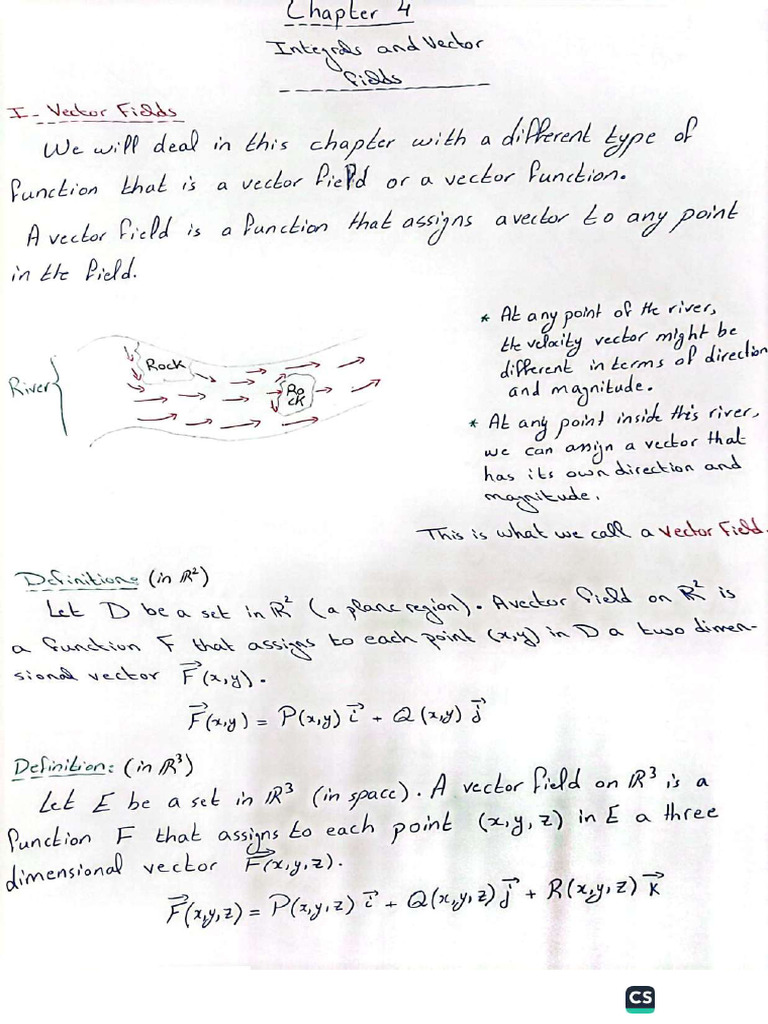 Chapter 4
Integrals and Vector
Fields
I - Vector Fields
We will deal in this chapter with a different type of
function that is a vector field or a vector function.
A vector field is a function that assigns a vector to any point
in the field.
River
Rock
Ro
ck
* At any point of the river,
the velocity vector might be
different in terms of direction
and magnitude.
* At any point inside this river,
we can assign a vector that
has its own direction and
magnitude.
This is what we call a Vector Field.
Definition: (in ℝ²)
Let D be a set in ℝ² (a plane region). A vector field on ℝ² is
a function F that assigns to each point (x,y) in D a two dimen-
sional vector F⃗(x,y).
F⃗(x,y) = P(x,y) i⃗ + Q(x,y) j⃗
Definition: (in ℝ³)
Let E be a set in ℝ³ (in space). A vector field on ℝ³ is a
function F that assigns to each point (x,y,z) in E a three
dimensional vector F⃗(x,y,z).
F⃗(x,y,z) = P(x,y,z) i⃗ + Q(x,y,z) j⃗ + R(x,y,z) k⃗
CS